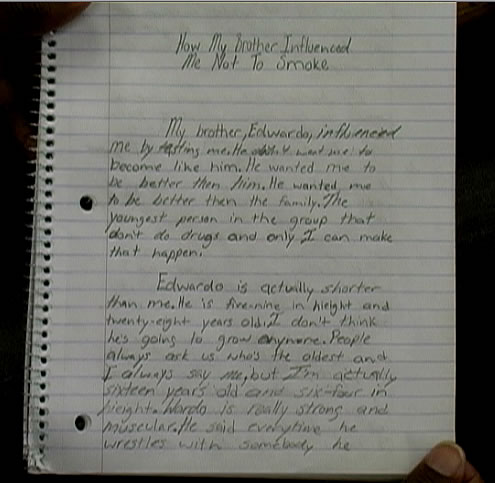 How My Brother Influenced
Me Not To Smoke
My brother, Edwardo, influenced
me by testing me. He didn't want me to
become like him. He wanted me to
be better then him. He wanted me
to be better then the family. The
youngest person in the group that
don't do drugs and only I can make
that happen.
Edwardo is actually shorter
than me. He is five-nine in hieght and
twenty-eight years old. I don't think
he's going to grow anymore. People
always ask us who's the oldest and
I always say me, but I'm actually
sixteen years old and six-four in
hieght. Wardo is really strong and
muscular. He said everytime he
wrestles with somebody he